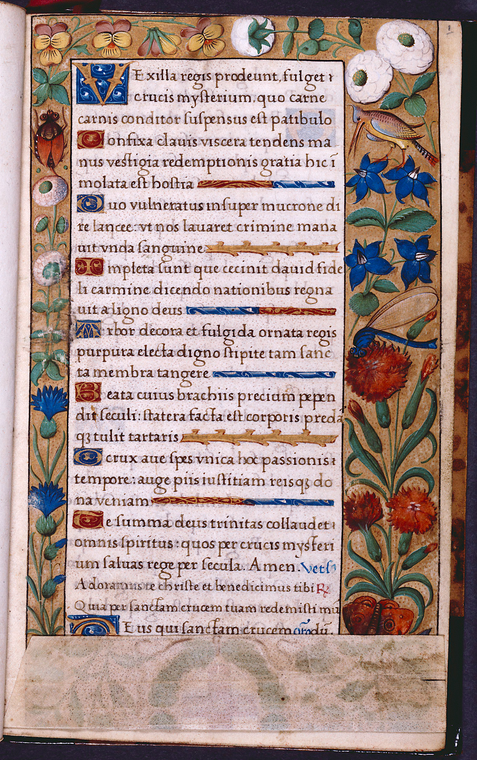 Vexilla regis prodeunt, fulget
crucis mysterium, quo carne
carnis conditor suspensus est patibulo
Confixa clauis viscera tendens ma
nus vestigia redemptionis gratia hic ī
molata est hostia
Quo vulneratus insuper mucrone di
re lancee: vt nos lauaret crimine mana
uit vnda sanguine
Impleta sunt que cecinit dauid fide
li carmine dicendo nationibus regna
uit a ligno deus
Arbor decora et fulgida ornata regis
purpura electa digno stipite tam sanc
ta membra tangere
Beata cuius brachiis precium pepen
dit seculi: statera facta est corporis predā
qȝ tulit tartaris
O crux aue spes vnica hoc passionis
tempore: auge piis iustitiam reisqȝ do
na veniam
Te summa deus trinitas collaudet
omnis spiritus: quos per crucis mysteri
um saluas rege per secula. Amen. Vers
Adoramus te christe et benedicimus tibi ℟
Quia per sanctam crucem tuam redemisti mū
Deus qui sanctam crucem